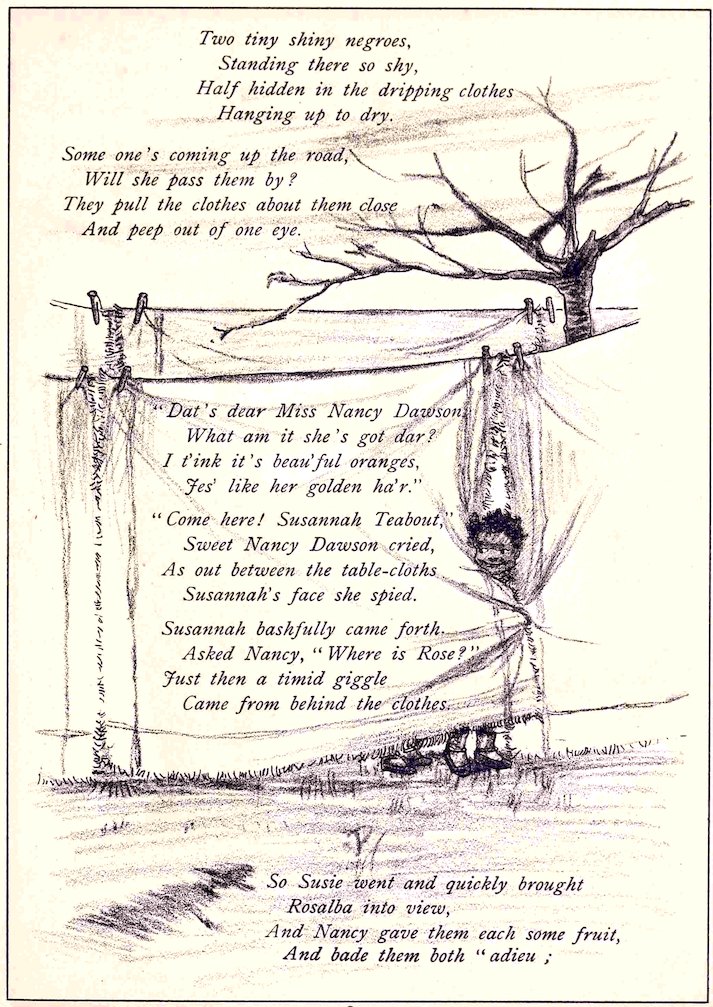 Two tiny shiny negroes,
Standing there so shy,
Half hidden in the dripping clothes
Hanging up to dry.
Some one's coming up the road,
Will she pass them by?
They pull the clothes about them close
And peep out of one eye.
"Dat's dear Miss Nancy Dawson,
What am it she's got dar?
I t'ink it's beau'ful oranges,
Jes' like her golden ha'r."
"Come here! Susannah Teabout,"
Sweet Nancy Dawson cried,
As out between the table-cloths
Susannah's face she spied.
Susannah bashfully came forth.
Asked Nancy, "Where is Rose?"
Just then a timid giggle
Came from behind the clothes.
So Susie went and quickly brought
Rosalba into view,
And Nancy gave them each some fruit,
And bade them both "adieu;